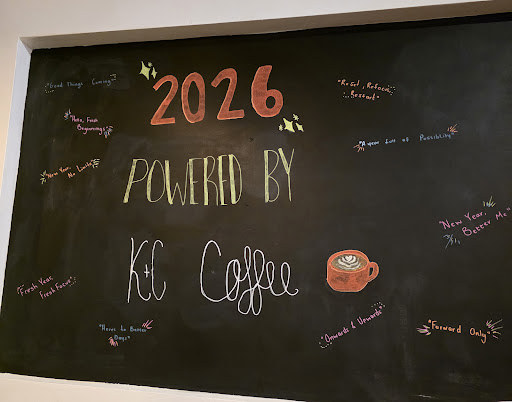 "Good Things Coming"
2026
"Reset, Refocus,
Restart"
"Hello, Fresh
Beginnings"
"A year full of Possibility"
"New Year,
No Limits"
POWERED BY
"New Year,
Better Me"
K+C Coffee
"Fresh Year,
Fresh Focus"
"Heres to Better
Days"
"Onwards & Upwards"
"Forward Only"